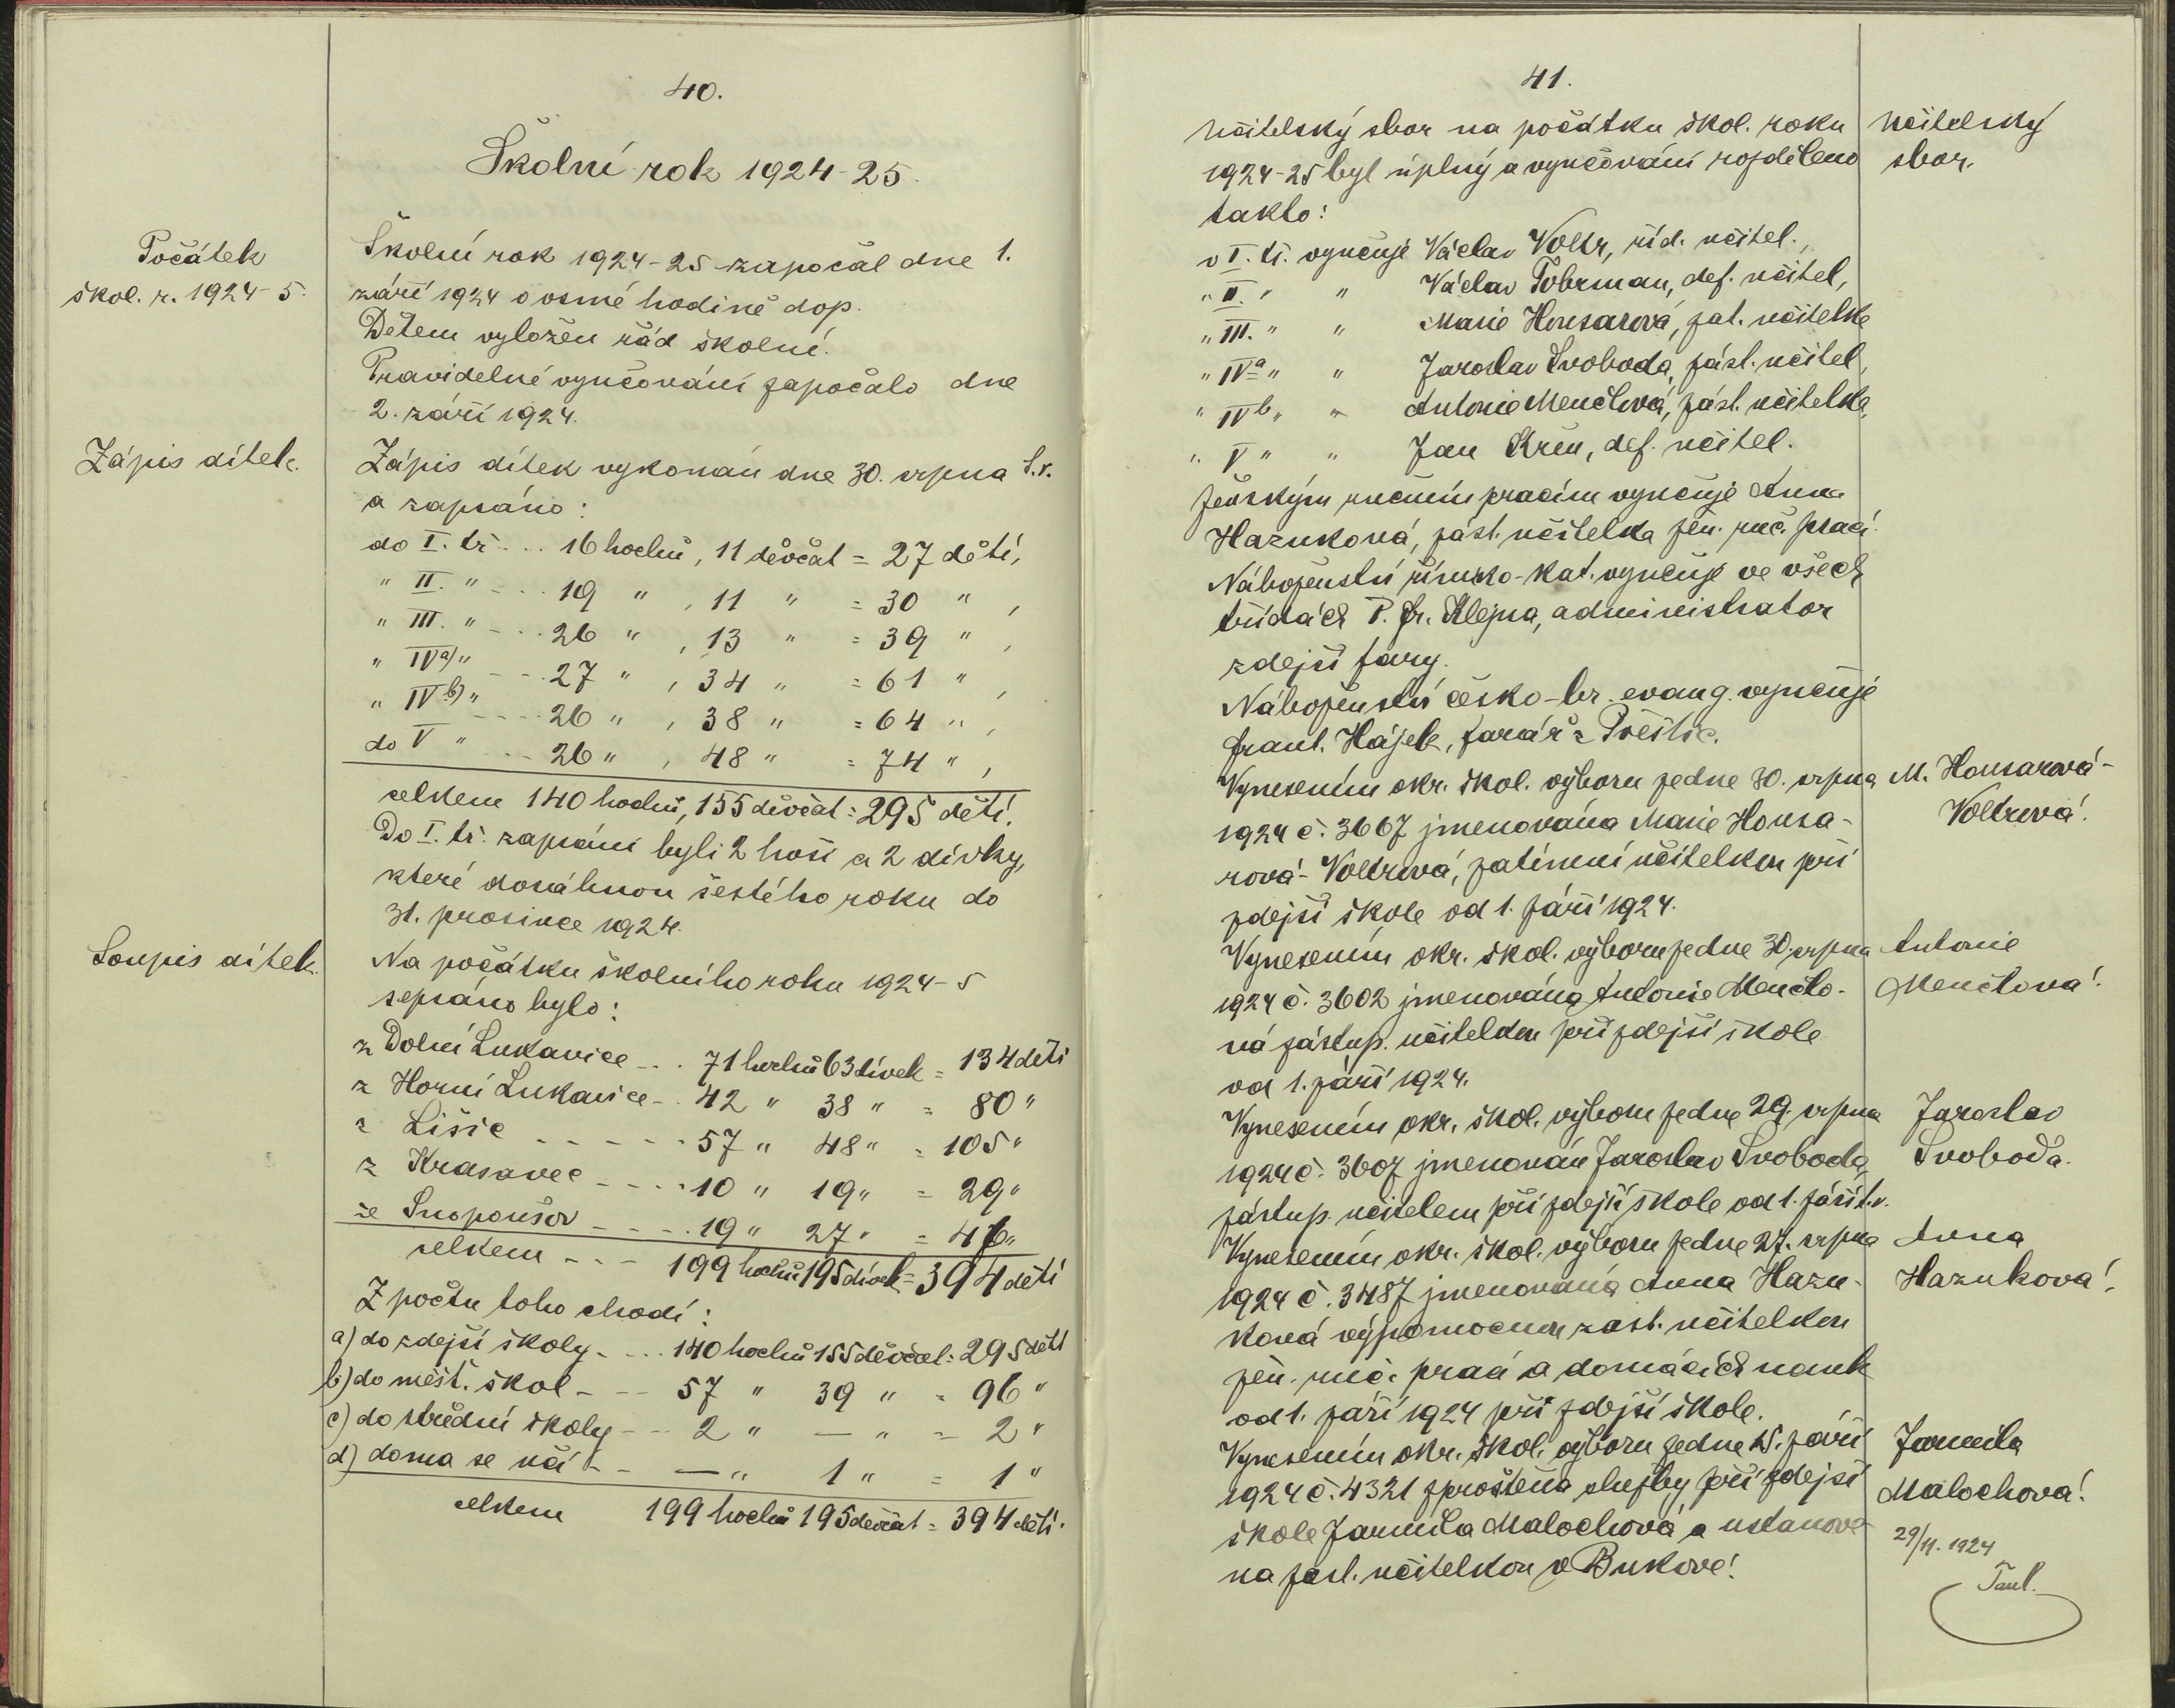 40.
Školní rok 1924-25.
Počátek
škol. r. 1924-5.
Školní rok 1924-25 započal dne 1.
září 1924 o osmé hodině dop.
Dětem vyložen řád školní.
Pravidelné vyučování započalo dne
2. září 1924.
Zápis dítek.
Zápis dítek vykonán dne 30. srpna t.r.
a zapsáno:
do I. tř. ... 16 hochů, 11 děvčat = 27 dětí,
" II. " - ... 19 " , 11 " = 30 " ,
" III. " - ... 26 " , 13 " = 39 " ,
" IVa) " - ... 27 " , 34 " = 61 " ,
" IVb) " - ... 26 " , 38 " = 64 " ,
do V " - ... 26 " , 48 " = 74 " ,
celkem 140 hochů, 155 děvčat = 295 dětí.
Do I. tř. zapsáni byli 2 hoši a 2 dívky,
které dosáhnou šestého roku do
31. prosince 1924.
Soupis dítek.
Na počátku školního roku 1924-5
sepsáno bylo:
z Dolní Lukavice - .. 71 hochů 63 dívek = 134 dětí
z Horní Lukavice - .. 42 " 38 " = 80 "
z Lišic - - - - - - 57 " 48 " = 105 "
z Krasavec - - - - 10 " 19 " = 29 "
ze Snopoušov - - - - 19 " 27 " = 46 "
celkem - - - 199 hochů 195 dívek = 394 dětí
Z počtu toho chodí:
a) do zdejší školy - ... 140 hochů 155 děvčat = 295 dětí
b) do měšť. škol - - - 57 " 39 " = 96 "
c) do střední školy - - 2 " — " = 2 "
d) doma se učí - - — " 1 " = 1 "
celkem 199 hochů 195 děvčat = 394 dětí.
41.
Učitelský sbor na počátku škol. roku
1924-25 byl úplný a vyučování rozděleno
takto:
Učitelský
sbor.
v I. tř. vyučuje Václav Voltr, říd. učitel.,
" II. " " Václav Tobrman, def. učitel,
" III. " " Marie Housarová, zat. učitelka
" IVa " " Jaroslav Svoboda, zást. učitel,
" IVb " " Antonie Menclová, zást. učitelka,
" V " " Jan Křen, def. učitel.
Ženským ručním pracím vyučuje Anna
Hazuková, zást. učitelka žen. ruč. prací.
Náboženství římsko-kat. vyučuje ve všech
třídách P. Fr. Klejna, administrator
zdejší fary.
Náboženství česko-br. evang. vyučuje
Frant. Hájek, farář z Přeštic.
Vynesením okr. škol. výboru ze dne 30. srpna
1924 č. 3667 jmenována Marie Housa-
rová-Voltrová, zatímní učitelkou při
zdejší škole od 1. září 1924.
M. Housarová-
Voltrová.
Vynesením okr. škol. výboru ze dne 30. srpna
1924 č. 3602 jmenována Antonie Menclo-
vá zástup. učitelkou při zdejší škole
od 1. září 1924.
Antonie
Menclová.
Vynesením okr. škol. výboru ze dne 29. srpna
1924 č. 3607 jmenován Jaroslav Svoboda
zástup. učitelem při zdejší škole od 1. září t.r.
Jaroslav
Svoboda.
Vynesením okr. škol. výboru ze dne 27. srpna
1924 č. 3487 jmenována Anna Hazu-
ková výpomocnou zast. učitelkou
žen. ruč. prací a domácích nauk
od 1. září 1924 při zdejší škole.
Anna
Hazuková.
Vynesením okr. škol. výboru ze dne 15. září
1924 č. 4321 zproštěna služby při zdejší
škole Jarmila Malochová a ustanove-
na zast. učitelkou v Bukové.
Jarmila
Malochová.
29/11. 1924